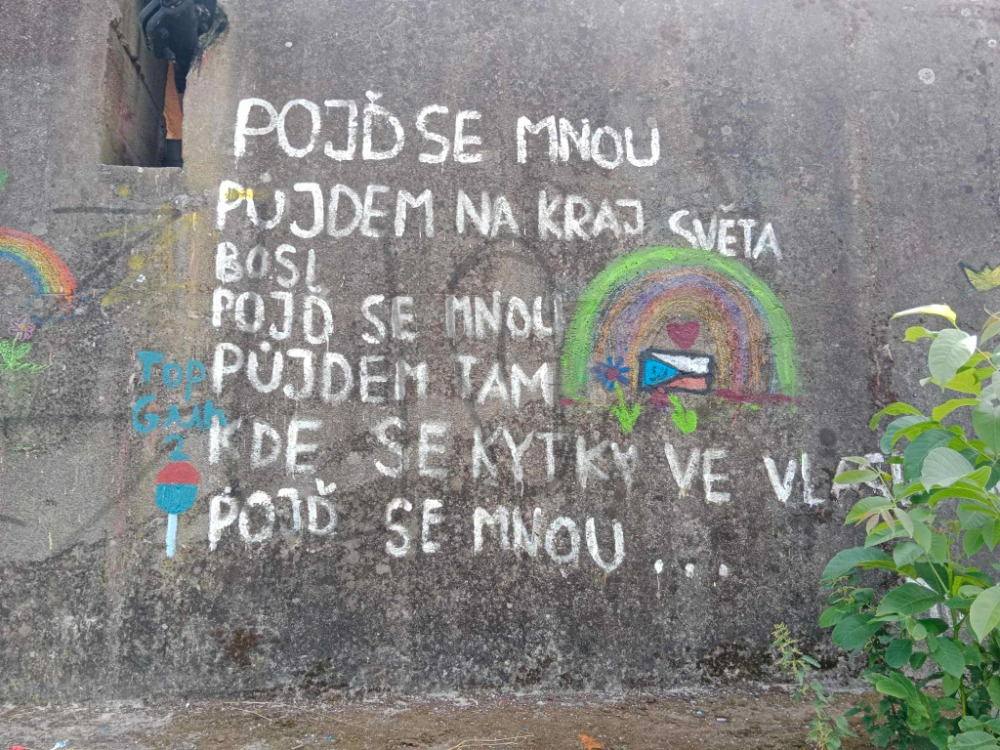 POJĎ SE MNOU
PŮJDEM NA KRAJ SVĚTA
BOSI
POJĎ SE MNOU
PŮJDEM TAM
KDE SE KYTKY VE
POJĎ SE MNOU...
Top
Gun
2